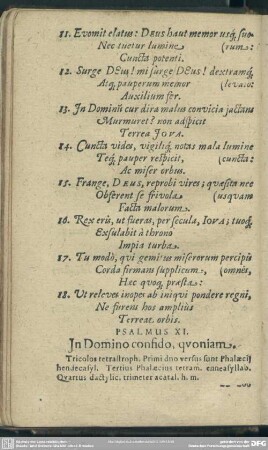 11. Evomit elatus: DEUS haut memor usq́, suo-
Nec tuetur lumine (rum:
Cuncta potenti.
12. Surge DEus! mi surge DEus! dextramq́,
Atq́, pauperum memor (levato:
Auxilium fer.
13. In Dominũ cur dira malus convicia jactans
Murmuret? non adspicit
Terrea JOVA.
14. Cuncta vides, vigiliq́, notas mala lumine
Teq́, pauper respicit, (cuncta:
Ac miser orbus.
15. Frange, DEUS, reprobi vires; quæsita nec
Obferent se frivola (usquam
Facta malorum.
16. Rex eris, ut fueras, per secula, IOVA; tuoq́,
Exsulabit à throno
Impia turba.
17. Tu modò, qui gemitus miserorum percipis
Corda firmans supplicum, (omnes,
Hæc quoq, præsta:
18. Ut releves inopes ab iniqui pondere regni,
Ne furens hos amplius
Terreat orbis.
PSALMUS XI.
In Domino confido, qvoniam.
Tricolos tetrastroph. Primi duo versus sunt Phalæcij
hendecasyl. Tertius Phalæcius tetram. enneasyllab.
Qvartus dactylic. trimeter acatal. h. m.